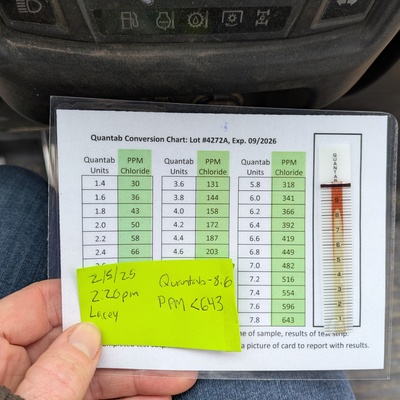 Quantab Conversion Chart: Lot #4272A, Exp. 09/2026
Quantab Units PPM Chloride Quantab Units PPM Chloride Quantab Units PPM Chloride
1.4 30 3.6 131 5.8 318
1.6 36 3.8 144 6.0 341
1.8 43 4.0 158 6.2 366
2.0 50 4.2 172 6.4 392
2.2 58 4.4 187 6.6 419
2.4 66 4.6 203 6.8 449
7.0 482
7.2 516
7.4 554
7.6 596
7.8 643
QUANTAB
8
7
6
5
4
3
2
1
2/5/25
2:20pm
Lacey
Quantab-8.6
PPM <643
me of sample, results of test strip.
a picture of card to report with results.